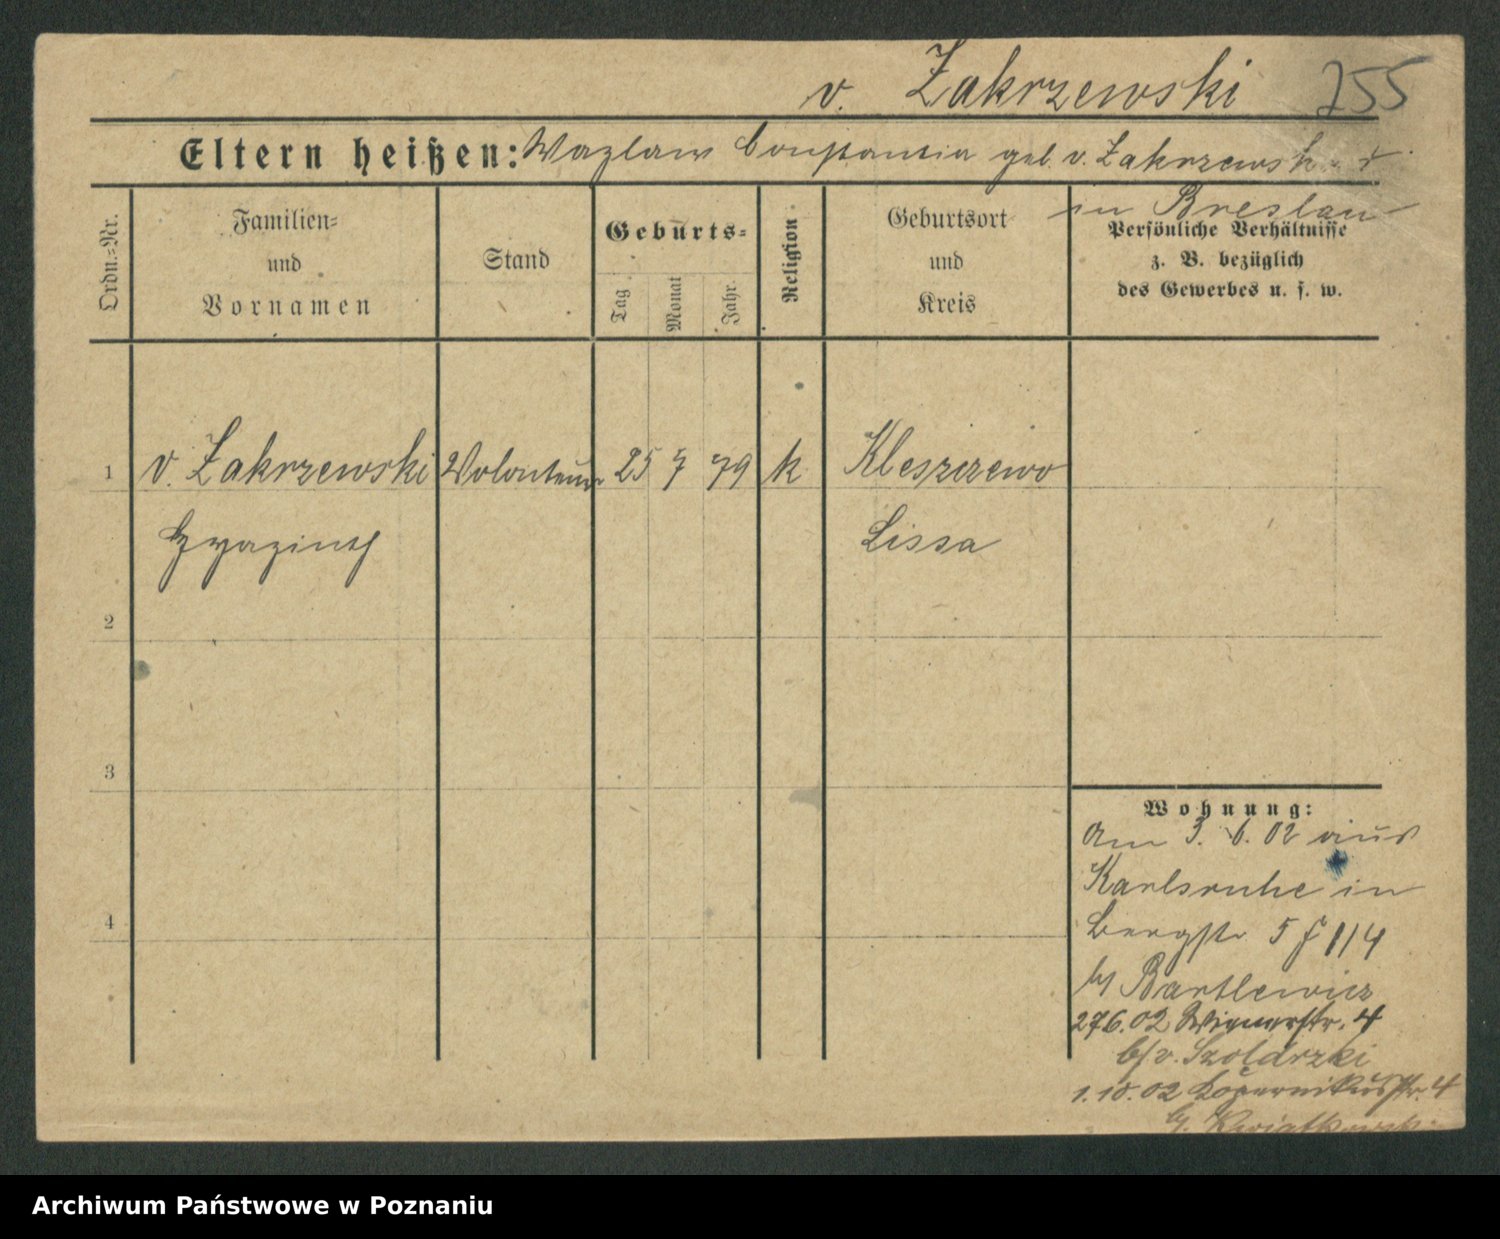 v. Zakrzewski 755
Eltern heißen: Wazlaw Constantia geb. v. Zakrzewski
in Breslau
Ordn.-Nr.
Familien-
und
Vornamen
Stand
Geburts-
Tag
Monat
Jahr
Religion
Geburtsort
und
Kreis
Persönliche Verhältnisse
z. B. bezüglich
des Gewerbes u. s. w.
1 v. Zakrzewski Volonteur 25 7 79 k Kleszczewo
Hyazinth Lissa
2
3
4
Wohnung:
Am 3. 6. 02 aus
Karlsruhe in
Bergstr 5 1/4
b/ Bartlewicz
27.6.02 Wienerstr. 4
b/ v. Szoldrzki
1.10.02 Kopernikusstr. 4
b/ Kwiatkowski
Archiwum Państwowe w Poznaniu